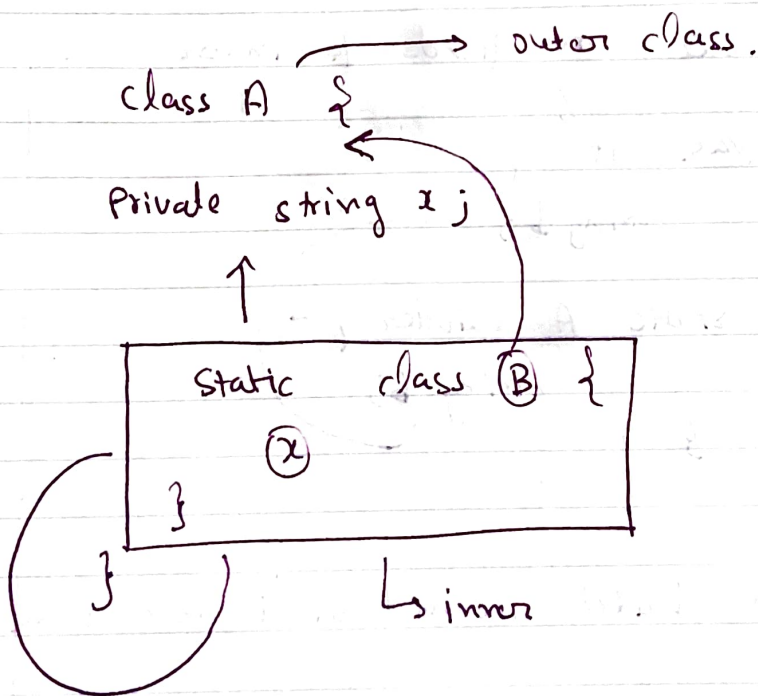 outer class.
class A {
Private string x;
static class B {
x
}
}
inner